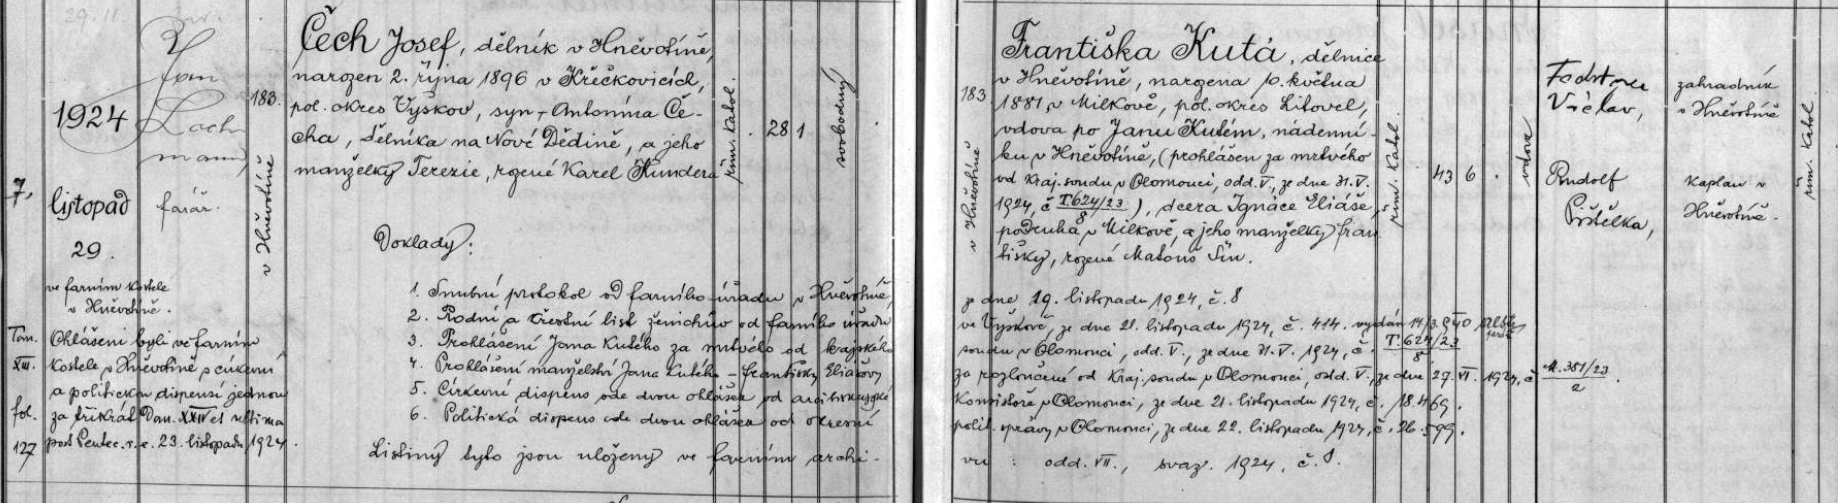 1924
listopad
29.
ve farním kostele
v Hněvotíně.
7.
Jan
Lach
mann,
farář.
183.
v Hněvotíně
Čech Josef, dělník v Hněvotíně,
narozen 2. října 1896 v Křečkovicích,
pol. okres Vyškov, syn Antonína Če-
cha, dělníka na Nové Dědině, a jeho
manželky Terezie, rozené Karel Kundera
řím. katol.
28 1
svobodný
Doklady:
Tom.
XIII.
fol.
127
Ohlášeni byli ve farním
kostele v Hněvotíně s církevní
a politickou dispensí jednou
za třikrát Dom. XXIV et ultima
post Pentec. t. e. 23. listopadu 1924.
Františka Kutá, dělnice
v Hněvotíně, narozena 10. května
1881 v Milkově, pol. okres Litovel,
vdova po Janu Kutém, nádenní-
ku v Hněvotíně, (prohlášen za mrtvého
od kraj. soudu v Olomouci, odd. V., ze dne 31. V.
1924, č. T. 624/23/8), dcera Ignáce Eliáše,
podruha v Milkově, a jeho manželky Fran
tišky, rozené Matouš Šín.
183
v Hněvotíně
řím. katol.
43 6
vdova
Václav,
zahradník
v Hněvotíně
Rudolf
kaplan v
Hněvotíně.
řím. katol.
1. Snubní protokol od farního úřadu v Hněvotíně, ze dne 19. listopadu 1924, č. 8
2. Rodní a křestní list ženichův od farního úřadu ve Vyškově, ze dne 21. listopadu 1924, č. 414. vydán 14/3. 940
3. Prohlášení Jana Kutého za mrtvého od krajského soudu v Olomouci, odd. V., ze dne 31. V. 1924, č. T. 624/23/8
4. Prohlášení manželství Jana Kutého – Františky Eliášovy za rozloučené od kraj. soudu v Olomouci, odd. V., ze dne 27. VI. 1924, č. 351/23/2.
5. Církevní dispens ode dvou ohlášek od arcibiskupské konsistoře v Olomouci, ze dne 21. listopadu 1924, č. 18.469.
6. Politická dispens ode dvou ohlášek od okresní polit. správy v Olomouci, ze dne 22. listopadu 1924, č. 26.599.
Listiny tyto jsou uloženy ve farním archi-
vu : odd. VII., svaz. 1924, č. 8.